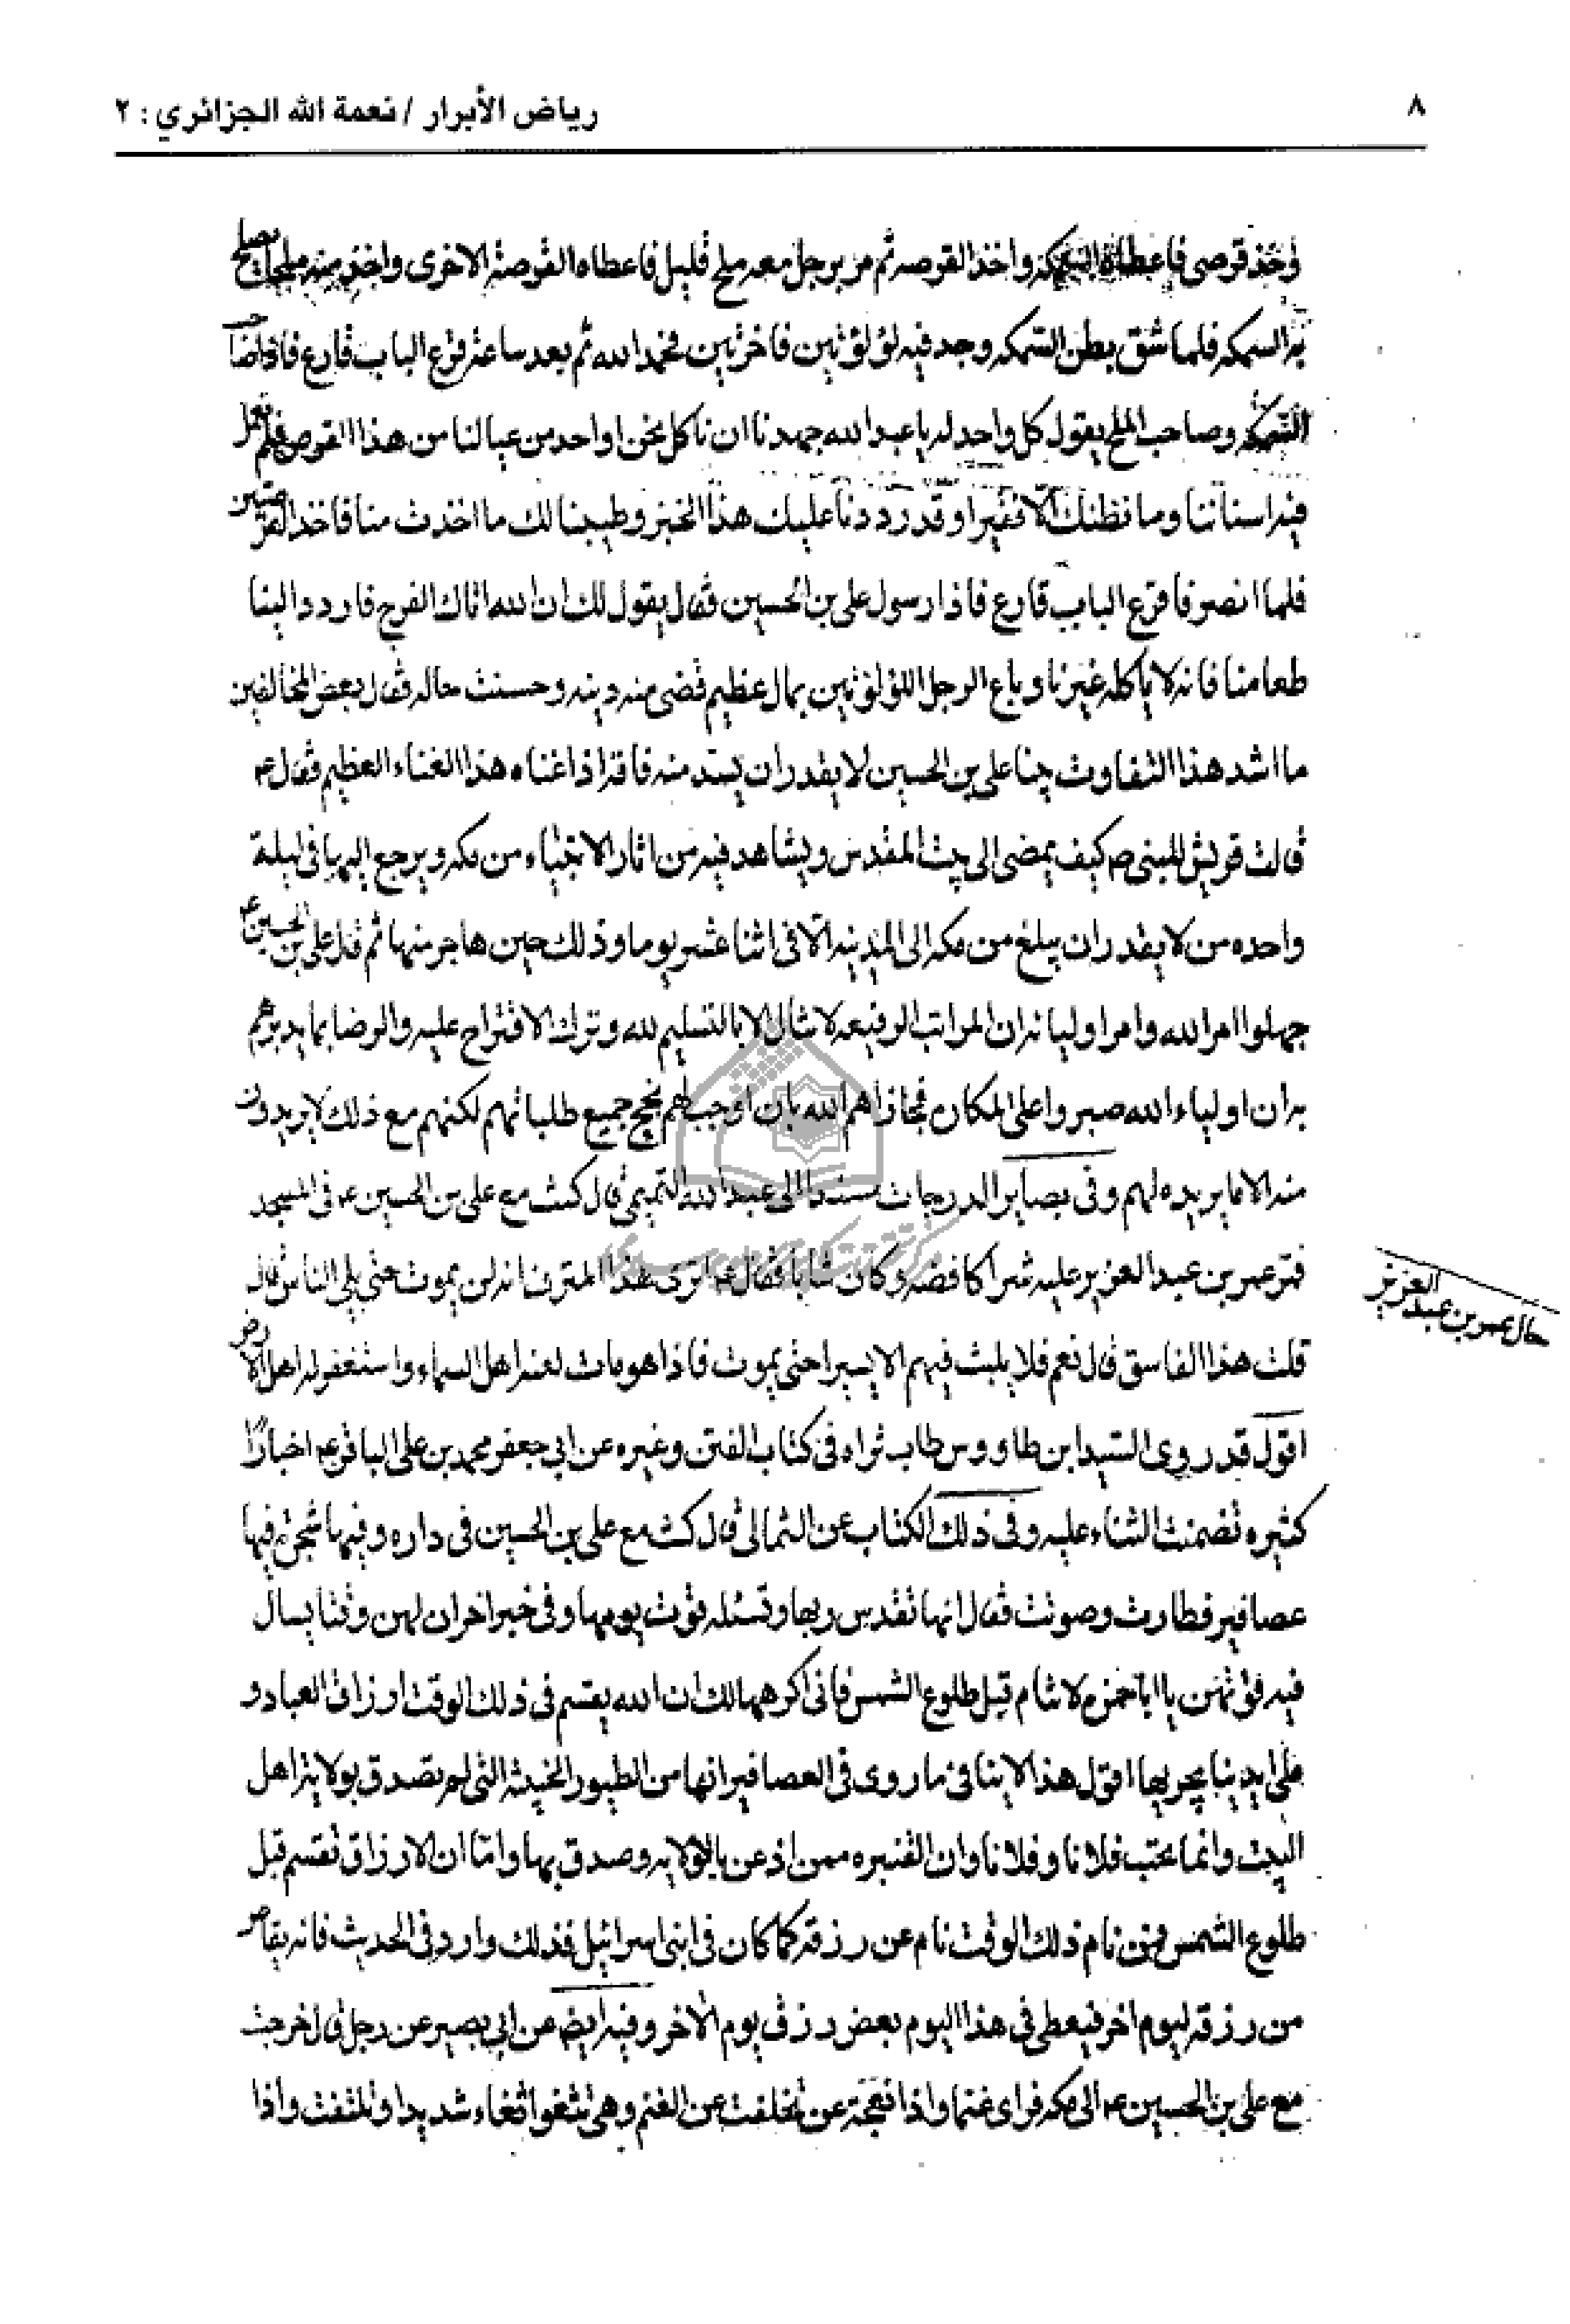 ٨
رياض الأبرار / نعمة الله الجزائري : ٢
وخذ قرصى فاعطاه السمكة واخذ القرصه ثم مر برجل معه ملح قليل فاعطاه القرصة الاخرى واخذ منه ملحا يصلح
به السمكه فلما شق بطن السمكه وجد فيه لؤلؤتين فاخرتين فحمد الله ثم بعد ساعة قرع الباب قارع فاذا صاحب
السمكه وصاحب الملح يقول كل واحد له يا عبد الله جهدنا ان ناكل نحن او احد من عيالنا من هذا القرص فلم تعمل
فيه اسناننا وما نظنك الا فقيرا وقد رددنا عليك هذا الخبز وطيبنا لك ما اخذت منا فاخذ القرصتين
فلما انصرفا قرع الباب قارع فاذا رسول على بن الحسين فقال يقول لك ان الله اتاك الفرج فاردد الينا
طعامنا فانه لا ياكله غيرنا وباع الرجل اللؤلؤتين بمال عظيم قضى منه دينه وحسنت حاله فقال بعض المخالفين
ما اشد هذا التفاوت بينا على بن الحسين لا يقدر ان يسد منه فاقة اذ اغناه هذا الغناء العظيم فقال ع
قالت قريش للنبى ص كيف يمضى الى بيت المقدس ويشاهد فيه من اثار الانبياء من مكه ويرجع اليها فى ليلة
واحده من لا يقدر ان يبلغ من مكه الى المدينه الا فى اثنا عشر يوما وذلك حين هاجر منها ثم قال على بن الحسين ع
جهلوا امر الله وامر اوليائه ان المراتب الرفيعه لا تنال الا بالتسليم لله وترك الاقتراح عليه والرضا بما يدبرهم
به ان اولياء الله صبروا على المكان فجازاهم الله بان اوجب لهم نجح جميع طلباتهم لكنهم مع ذلك لا يريدون
منه الا ما يريده لهم وفى بصاير الدرجات مسندا الى عبد الله التميمى قال كنت مع على بن الحسين ع فى المسجد
فمر عمر بن عبد العزيز عليه شراكا فضه وكان شابا فقال ع اترى هذا المترف انه لن يموت حتى يلى الناس قال
حال عمر بن عبد العزيز
قلت هذا الفاسق قال نعم فلا يلبث فيهم الا يسيرا حتى يموت فاذا هو مات لعنه اهل السماء واستغفر له اهل الارض
اقول قد روى السيد ابن طاووس طاب ثراه فى كتاب الفتن وغيره عن ابى جعفر محمد بن على الباقر ع اخبارا
كثيره تضمنت الثناء عليه وفى ذلك الكتاب عن الثمالى قال كنت مع على بن الحسين فى داره وفيها شجرة فيها
عصافير فطارت وصوتت فقال انها تقدس ربها وتسئله قوت يومها وفى خبر اخر ان لهن وقتا يسال
فيه قوتهن يا ابا حمزه لا تنام قبل طلوع الشمس فانى اكرهها لك ان الله يقسم فى ذلك الوقت ارزاق العباد و
على ايدينا يجريها اقول هذا لا ينافى ما روى فى العصافير انها من الطيور الخبيثة التى لم تصدق بولاية اهل
البيت وانما تحب فلانا وفلانا وان القنبره ممن اذعن بالولايه وصدق بها واما ان الارزاق تقسم قبل
طلوع الشمس فمن نام ذلك الوقت نام عن رزقه كما كان فى بنى اسرائيل فذلك وارد فى الحديث فانه يقاص
من رزقه ليوم اخر فيعطى فى هذا اليوم بعض رزق يوم الاخر وفيه ايض عن ابى بصير عن رجل قال خرجت
مع على بن الحسين ع الى مكه فراى غنما واذا نعجة عن تخلفت عن الغنم وهى تثغوا ثغاء شديدا وتلتفت واذا